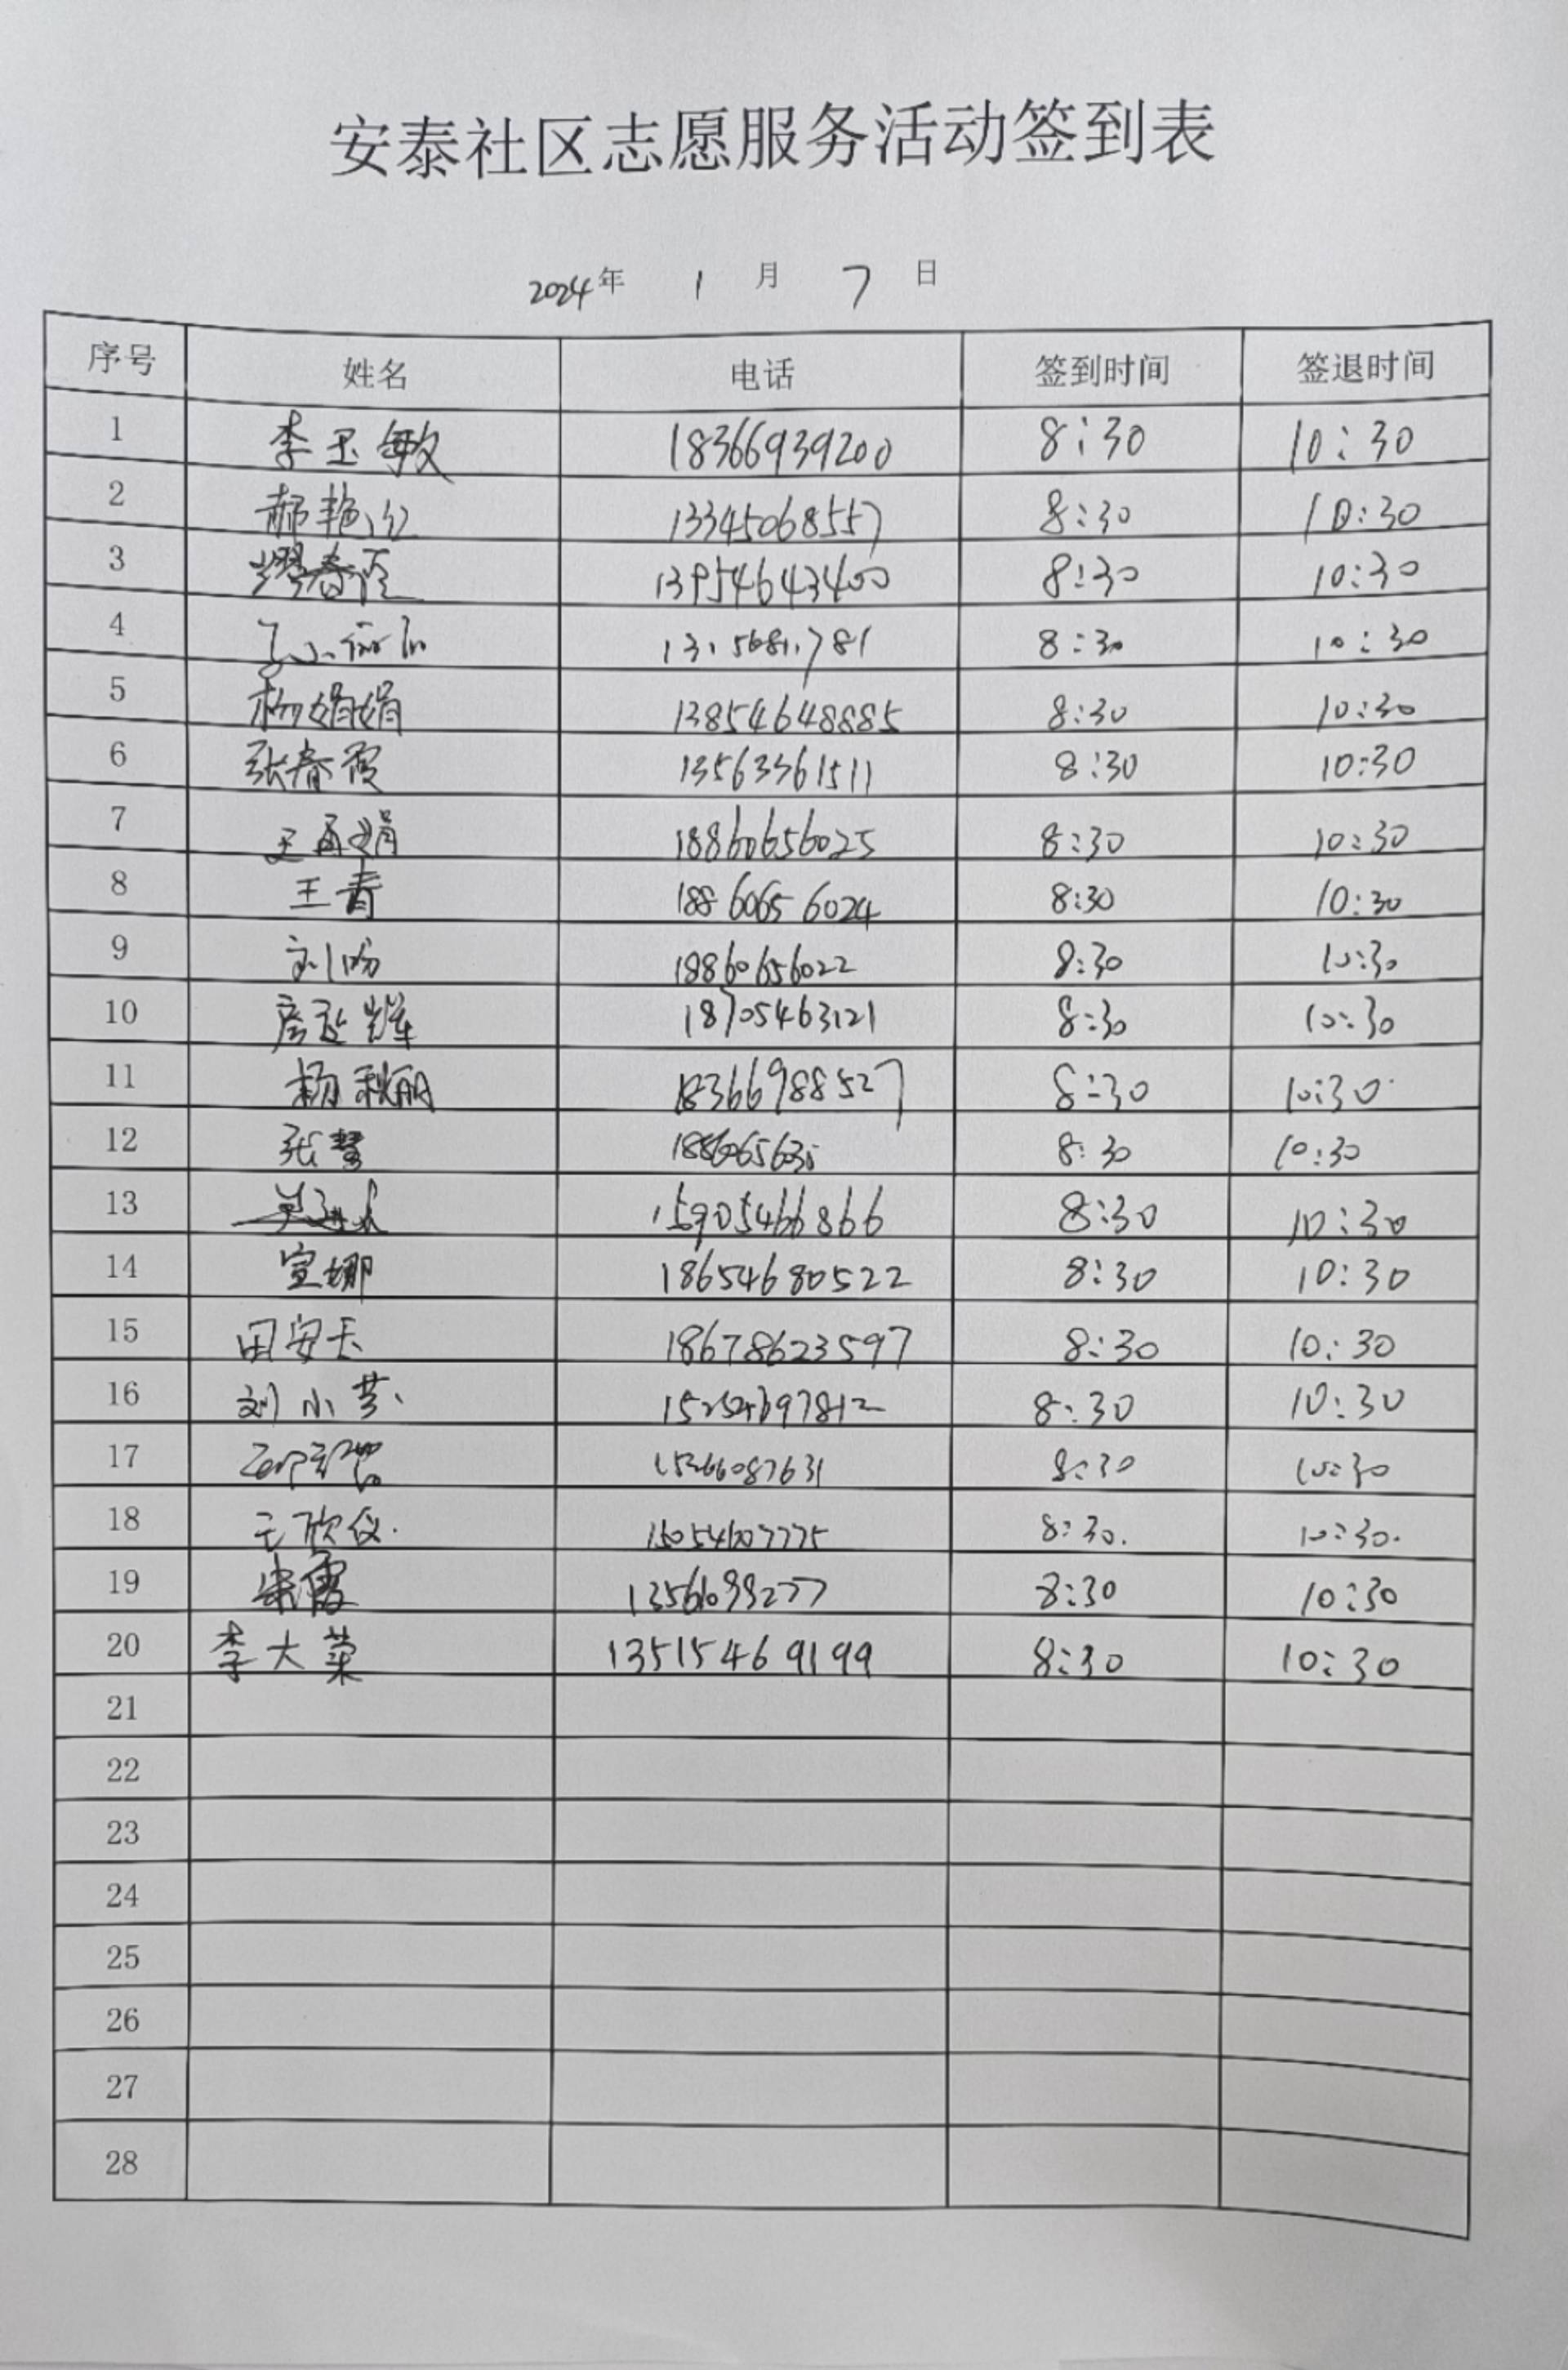 安泰社区志愿服务活动签到表
2024年 1 月 7 日
序号 姓名 电话 签到时间 签退时间
1 李玉敏 18366939200 8:30 10:30
2 郝艳红 13345068557 8:30 10:30
3 13954643400 8:30 10:30
4 8:30 10:30
5 杨娟娟 13854648885 8:30 10:30
6 张春霞 13563361511 8:30 10:30
7 18860656025 8:30 10:30
8 王青 18860656024 8:30 10:30
9 刘盼 18860656022 8:30 10:30
10 18705463121 8:30 10:30
11 杨秋丽 18366988527 8:30 10:30
12 张慧 8:30 10:30
13 15905466866 8:30 10:30
14 宣娜 18654680522 8:30 10:30
15 田安玉 18678623597 8:30 10:30
16 刘小芳 15254697812 8:30 10:30
17 15266087631 8:30 10:30
18 王欣仪 15054607775 8:30 10:30
19 宋雪 8:30 10:30
20 李大荣 13515469199 8:30 10:30
21
22
23
24
25
26
27
28